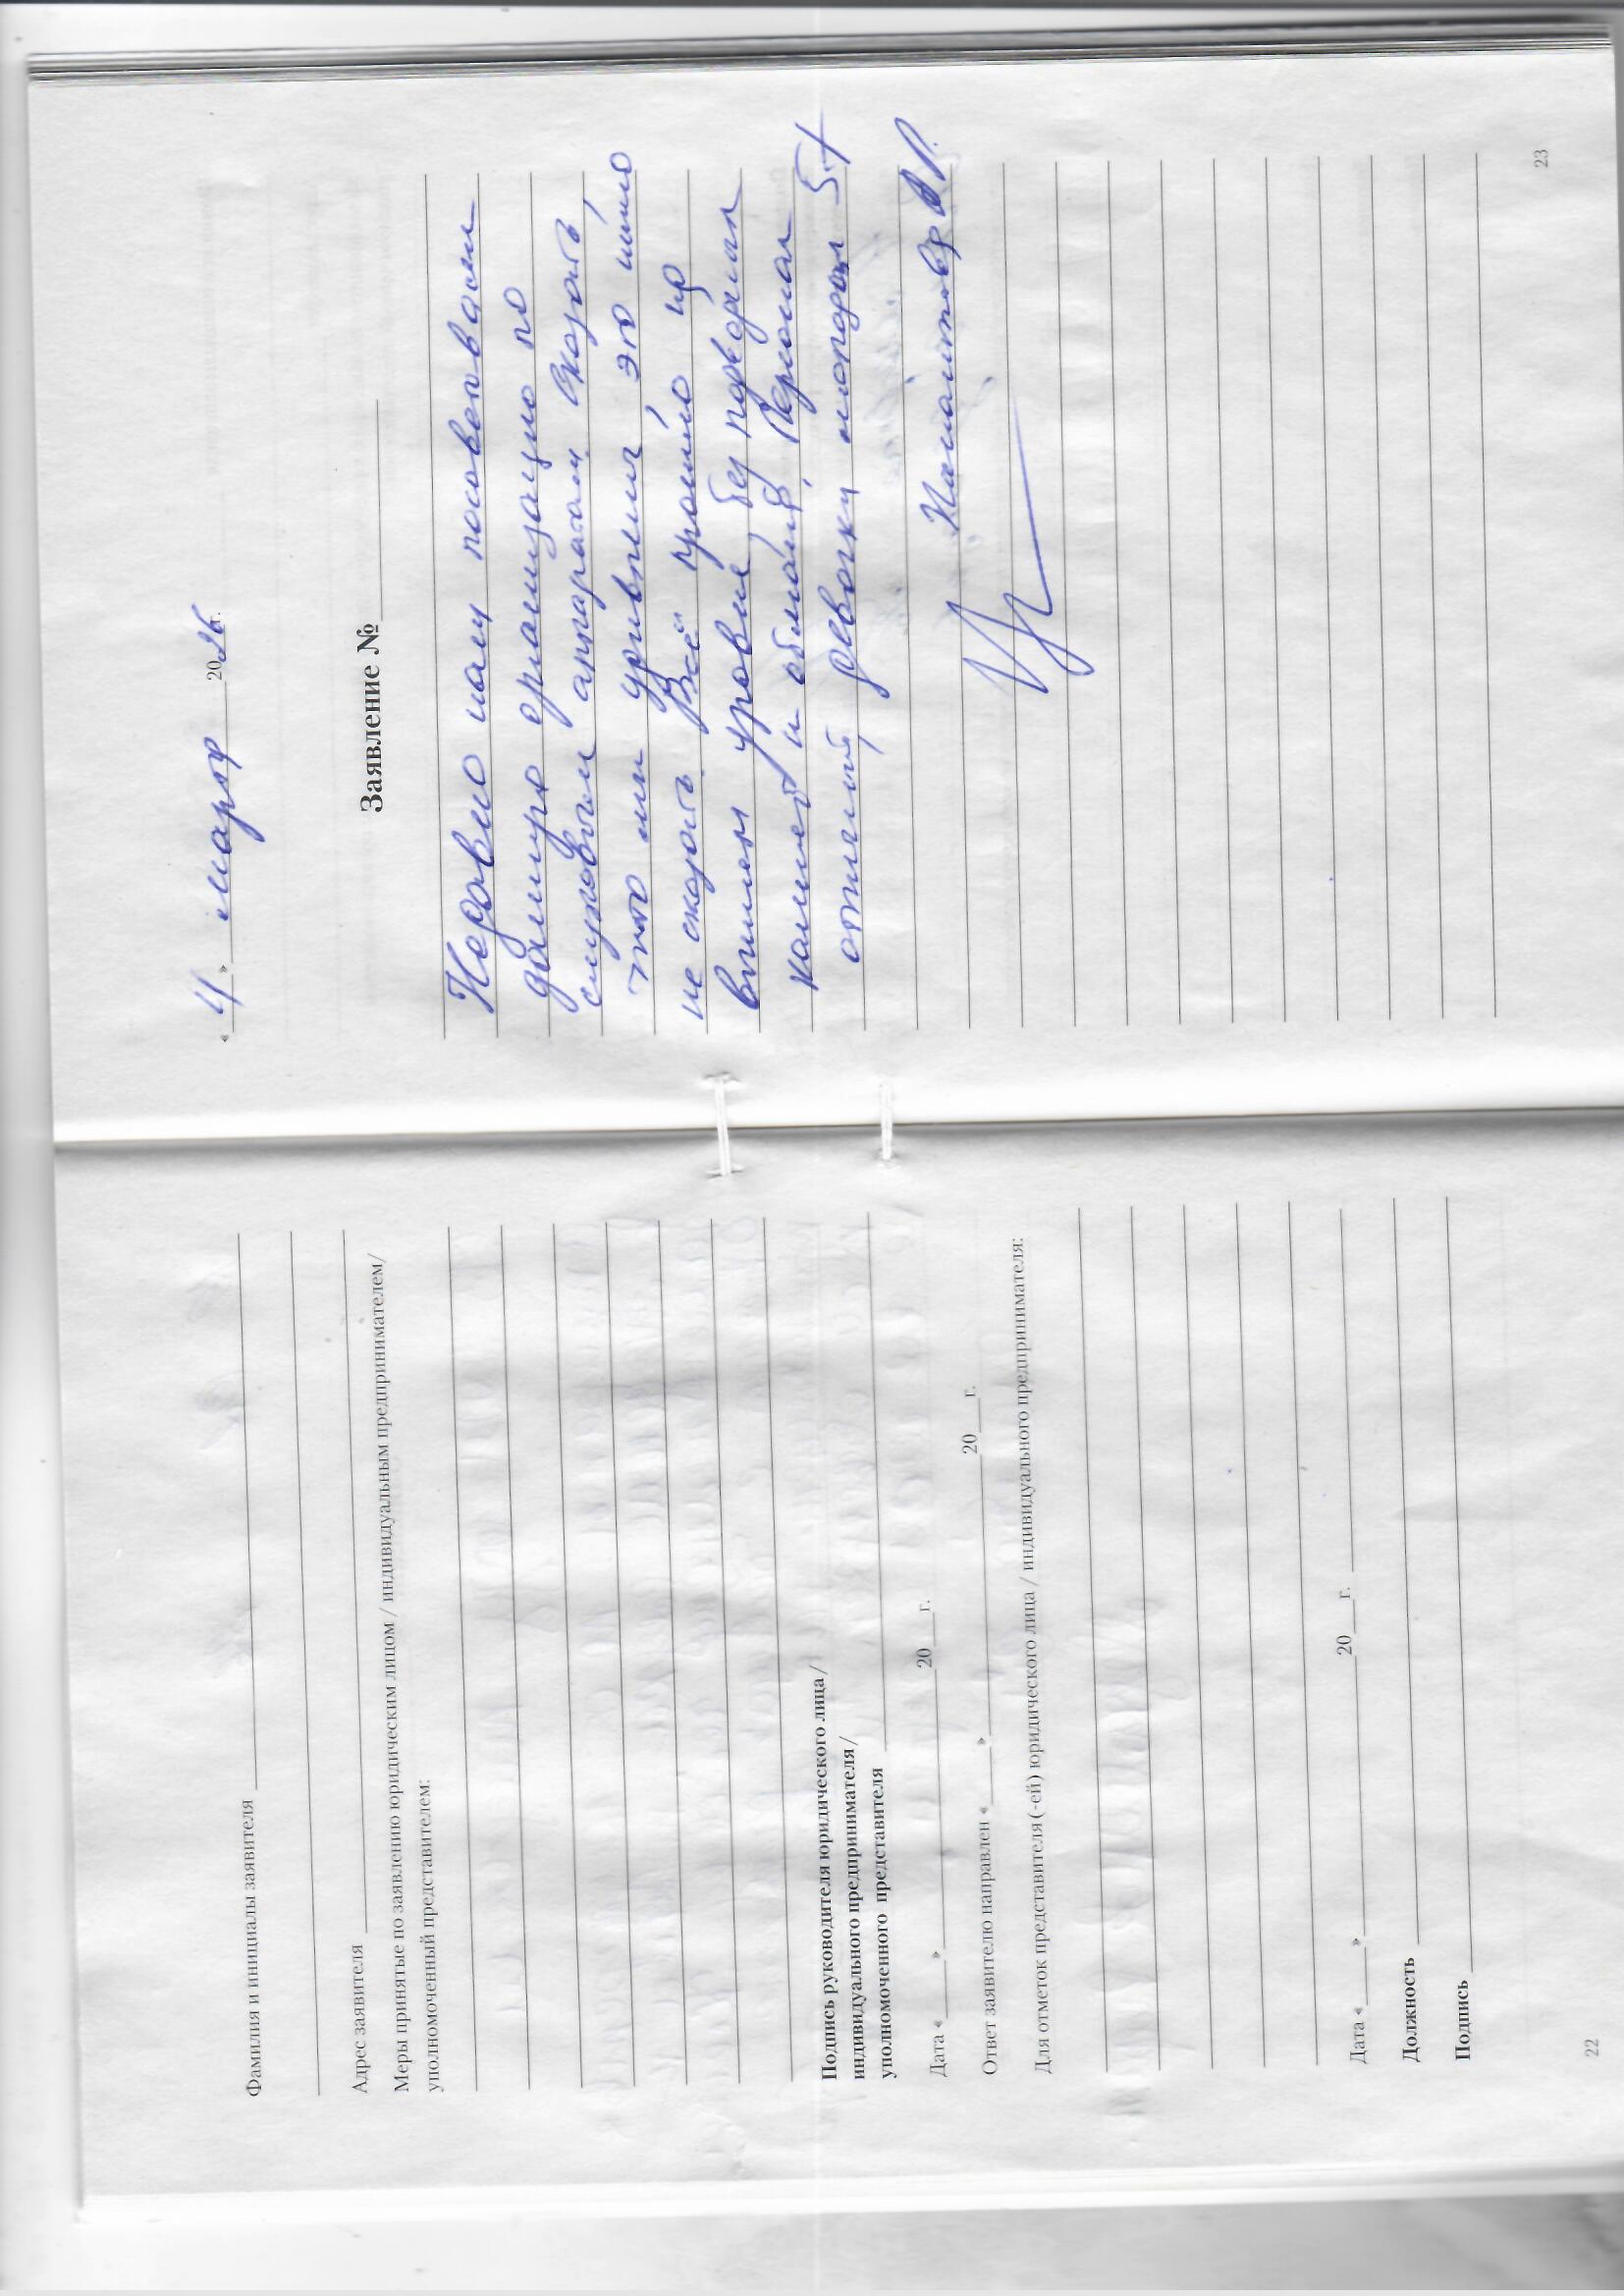 Фамилия и инициалы заявителя
Адрес заявителя
Меры принятые по заявлению юридическим лицом / индивидуальным предпринимателем/
уполномоченный представителем:
Подпись руководителя юридического лица/
индивидуального предпринимателя/
уполномоченного представителя
Дата «____» ____ 20__г.
Ответ заявителю направлен «____» ____ 20__г.
Для отметок представителя (-ей) юридического лица / индивидуального предпринимателя:
Дата «____» ____ 20__г.
Должность
Подпись
22
«4» марта 2026г.
Заявление №
Недавно нам посоветовали
данную организацию по
слуховым аппаратам. Сказать,
что мы удивлены, это ничего
не сказать. Всё прошло на
высшем уровне, без подводных
камней и обмана. Персонал
отличный, девочки молодцы 5+
23